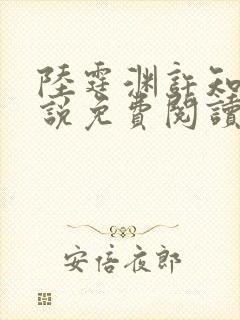 陸霆淵許知
說免費閱讀
安倍夜郎